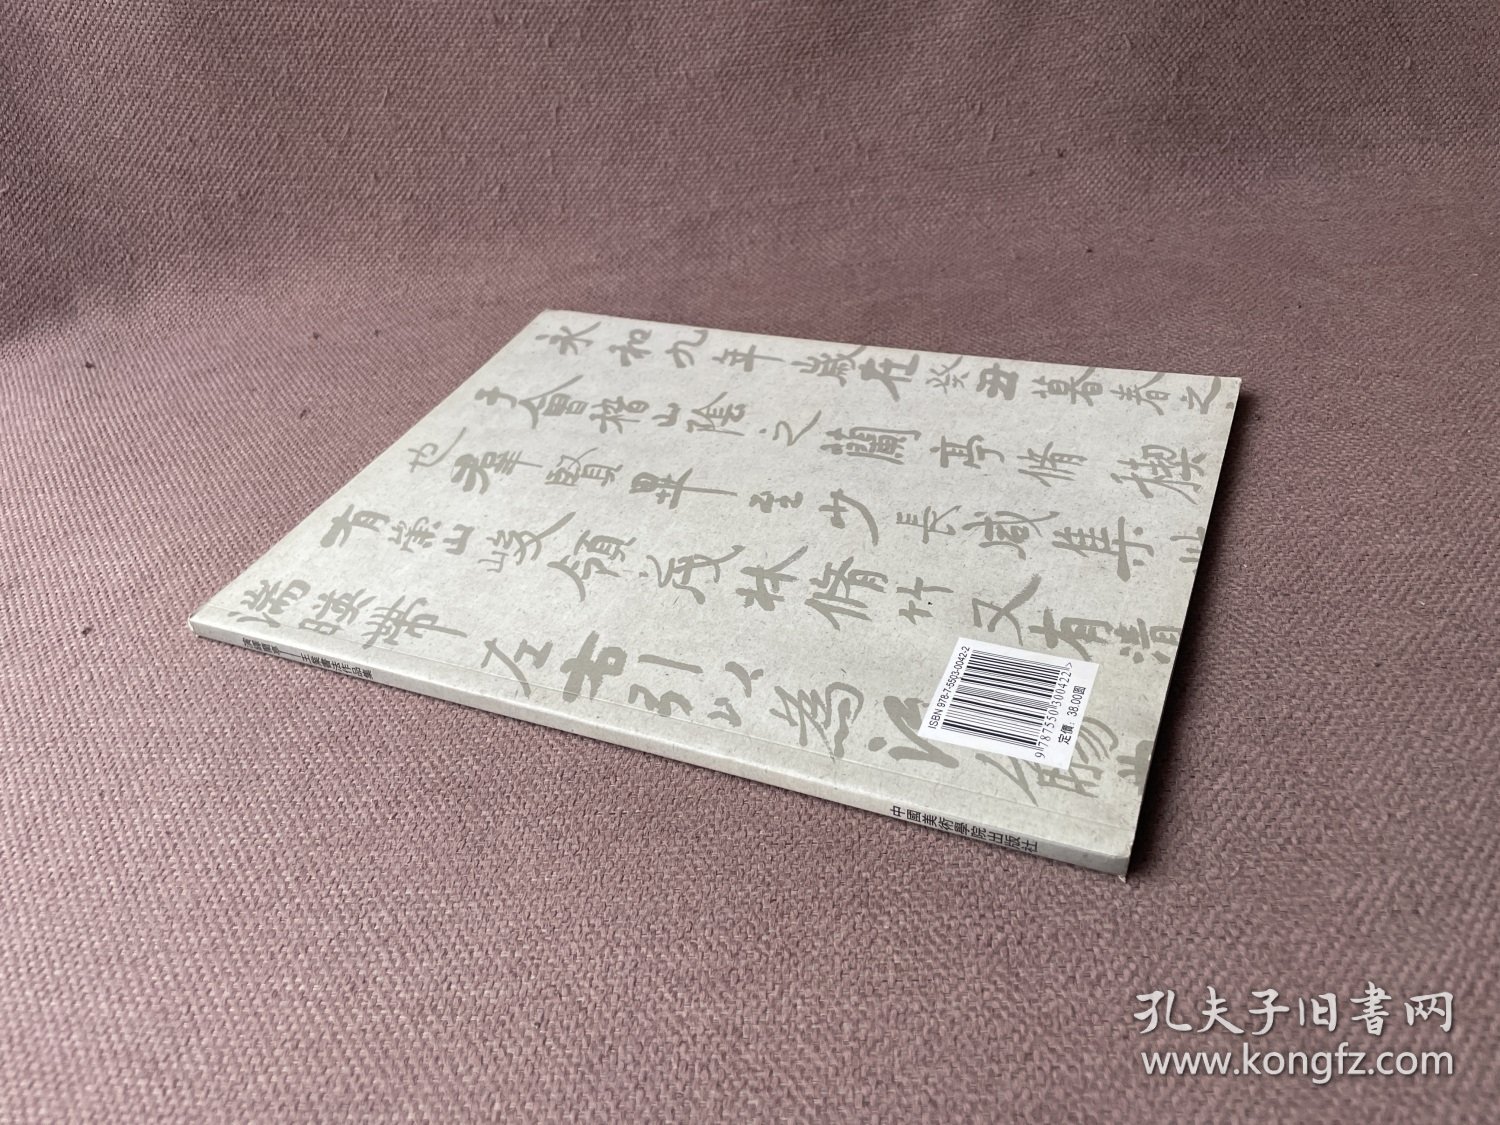 永和九年歲在癸丑暮春之
于會稽山陰之蘭亭脩稧
也群賢畢至少長咸集此
有崇山峻領茂林脩竹又有清
湍暎帶左右引以為
ISBN 978-7-5503-0042-2
9787550300422>
定價：38.00圓
王 書法作品集
中國美術學院出版社
孔夫子旧書网
www.kongfz.com